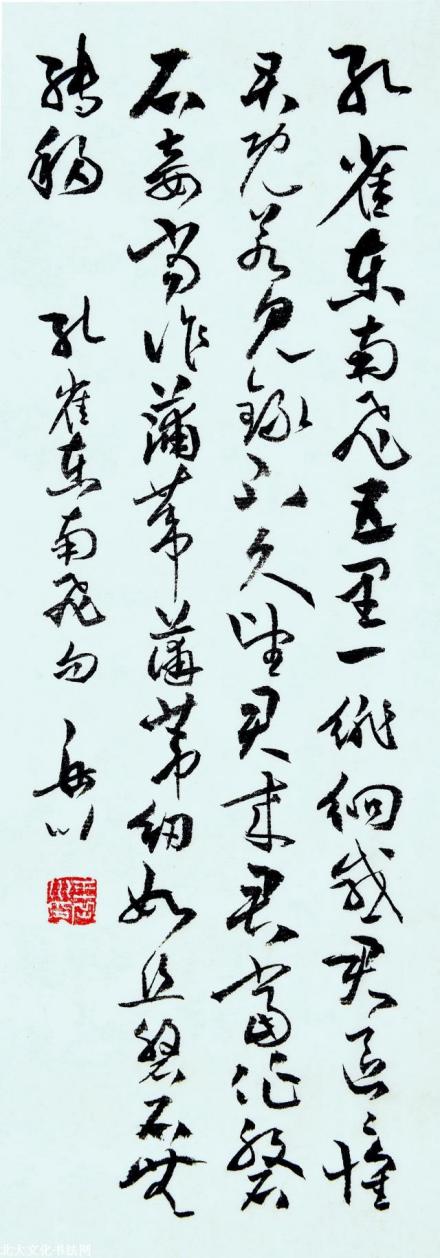 孔雀东南飞五里一徘徊感君区区怀
君既若见录不久望君来君当作磐
石妾当作蒲苇蒲苇纫如丝磐石无
转移 孔雀东南飞句
北大文化书法网